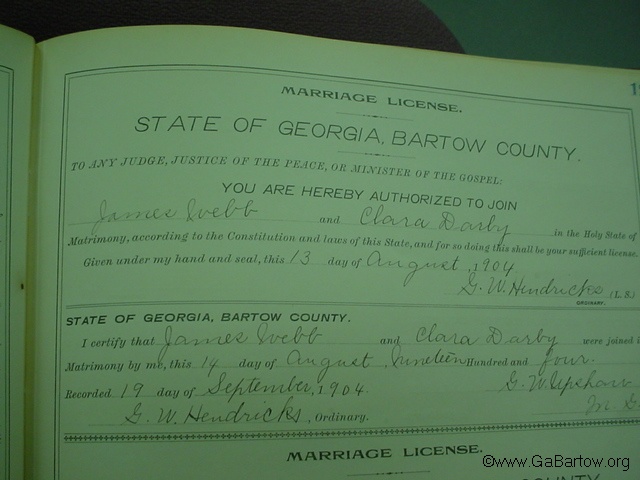 MARRIAGE LICENSE.
STATE OF GEORGIA, BARTOW COUNTY.
TO ANY JUDGE, JUSTICE OF THE PEACE, OR MINISTER OF THE GOSPEL:
YOU ARE HEREBY AUTHORIZED TO JOIN
James Webb and Clara Darby in the Holy State of
Matrimony, according to the Constitution and laws of this State, and for so doing this shall be your sufficient license.
Given under my hand and seal, this 13 day of August, 1904
G. W. Hendricks (L. S.)
ORDINARY.
STATE OF GEORGIA, BARTOW COUNTY.
I certify that James Webb and Clara Darby were joined i
Matrimony by me, this 14 day of August, Nineteen Hundred and four.
Recorded 19 day of September, 1904 G. W. Upshaw
G. W. Hendricks, Ordinary. M. G.
MARRIAGE LICENSE.
©www.GaBartow.org